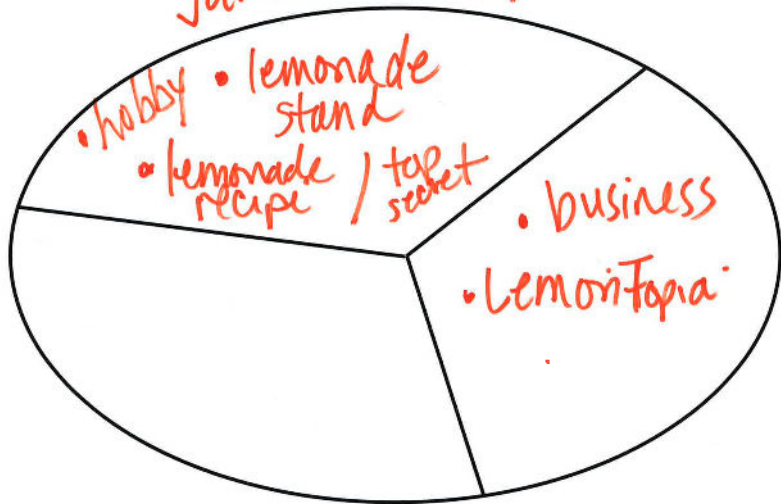 • hobby • lemonade
stand
• lemonade / top
recipe secret
• business
• LemonTopia